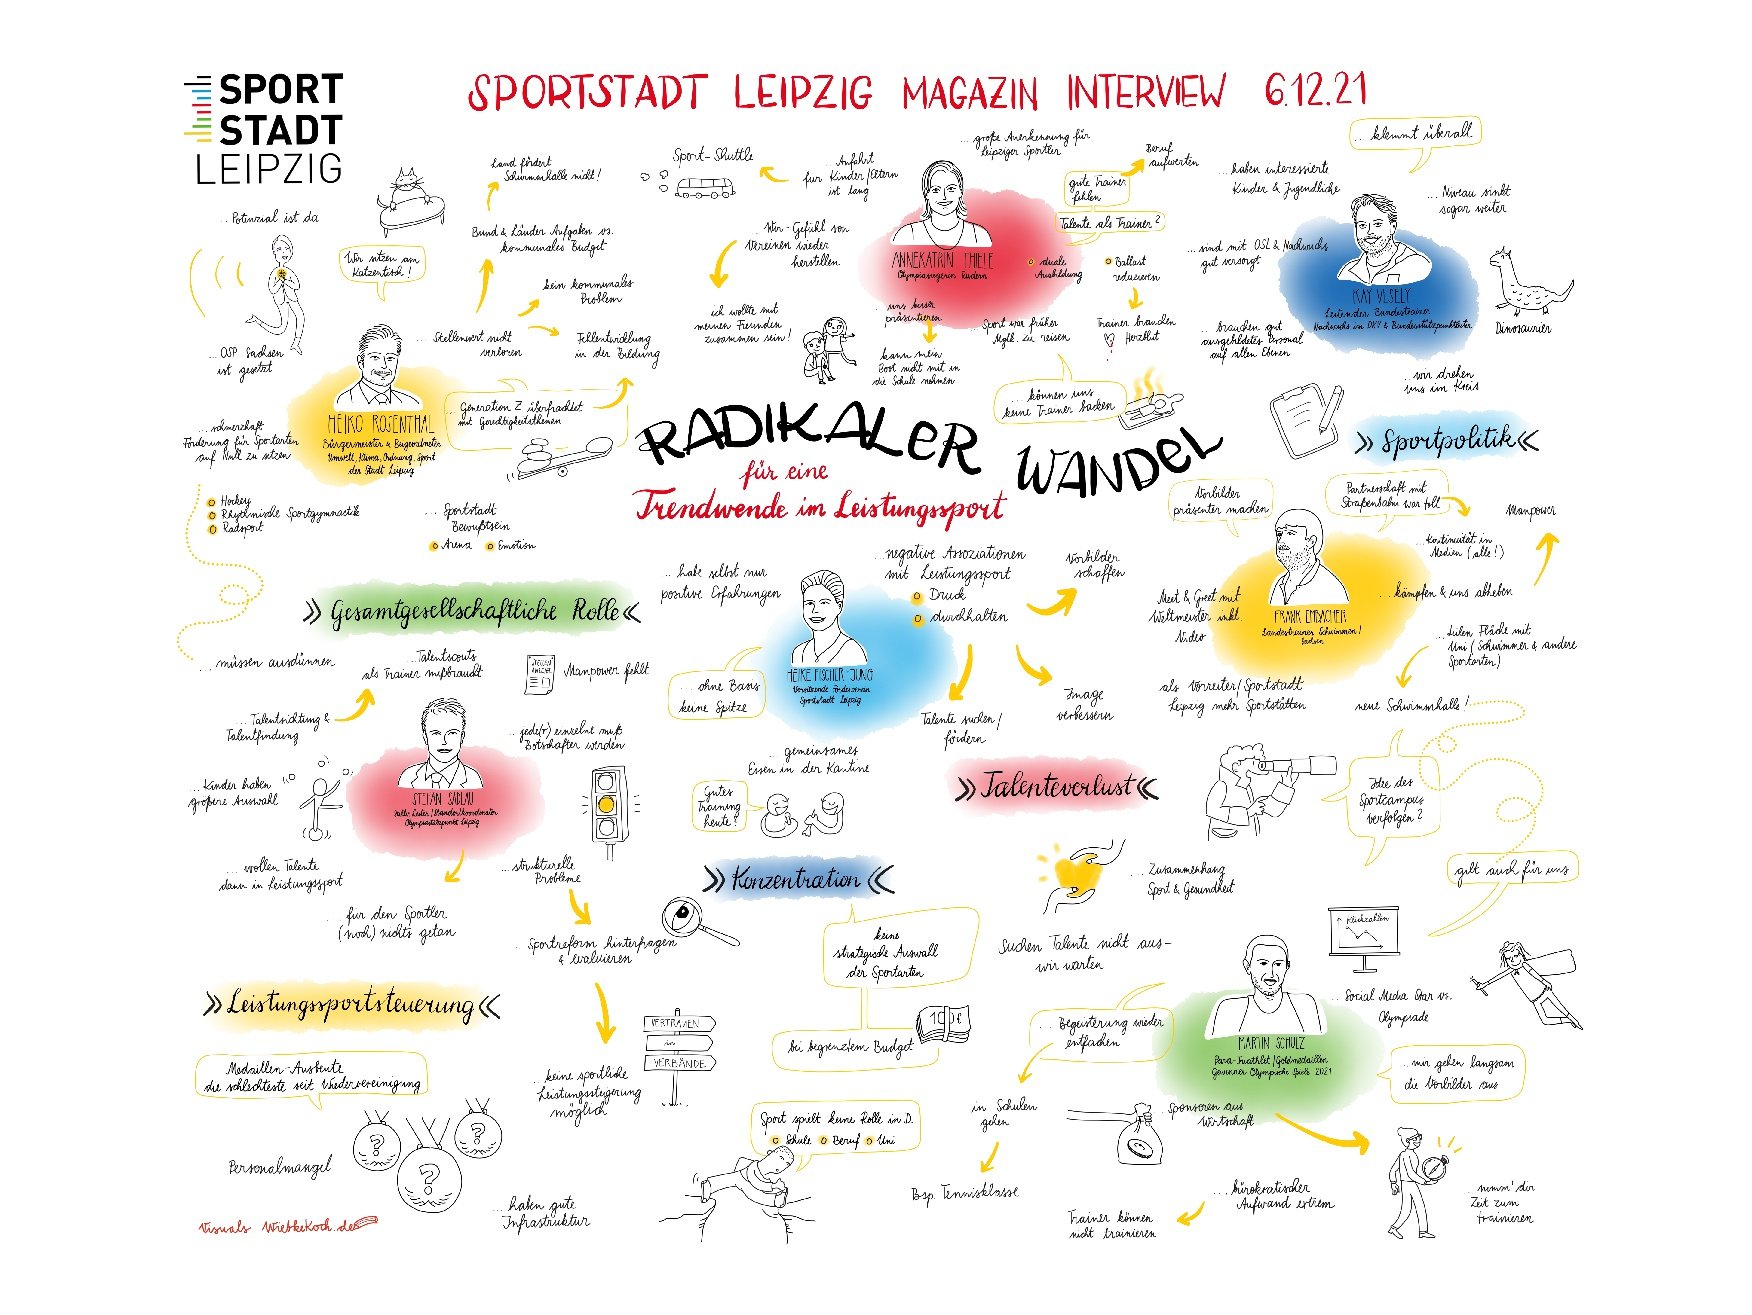 SPORT
STADT
LEIPZIG
SPORTSTADT LEIPZIG MAGAZIN INTERVIEW 6.12.21
... Potenzial ist da
Wir sitzen am
Katzentisch!
... OSP Sachsen
ist gesetzt
Land fördert
Schwimmhalle nicht!
Bund & Länder Aufgaben vs.
kommunales Budget
kein kommunales
Problem
... Stellenwert nicht
verloren
Fehlentwicklung
in der Bildung
Generation Z überfrachtet
mit Gerechtigkeitsthemen
HEIKO ROSENTHAL
Bürgermeister & Beigeordneter
Umwelt, Klima, Ordnung, Sport
der Stadt Leipzig
... schmerzhaft
Förderung für Sportarten
auf Null zu setzen
Hockey
Rhythmische Sportgymnastik
Radsport
... Sportstadt
Bewußtsein
Arena
Emotion
Sport-Shuttle
... Anfahrt
für Kinder/Eltern
ist lang
... Wir-Gefühl von
Vereinen wieder
herstellen
ich wollte mit
meinen Freunden
zusammen sein!
... große Anerkennung für
Leipziger Sportler
gute Trainer
fehlen
Beruf
aufwerten
Talente als Trainer?
ANNEKATRIN THIELE
Olympiasiegerin Rudern
duale
Ausbildung
Ballast
reduzieren
... uns besser
präsentieren
kann mein
Boot nicht mit in
die Schule nehmen
Sport war früher
Mgl. zu reisen
Trainer brauchen
Herzblut
... können uns
keine Trainer backen
... klemmt überall
... haben interessierte
Kinder & Jugendliche
... Niveau sinkt
sogar weiter
... sind mit OSL & Nachwuchs
gut versorgt
KAY VESELY
Leitender Bundestrainer
Nachwuchs im DKV & Bundesstützpunktleiter
Dinosaurier
... brauchen gut
ausgebildetes Personal
auf allen Ebenen
... wir drehen
uns im Kreis
RADIKALER WANDEL
für eine
Trendwende im Leistungssport
» Sportpolitik «
Vorbilder
präsenter machen
Partnerschaft mit
Straßenbahn war toll
Manpower
... Kontinuität in
Medien (alle!)
Meet & Greet mit
Weltmeister inkl.
Video
FRANK EMBACHER
Landestrainer Schwimmen/
Sachsen
... kämpfen & uns abheben
... teilen Fläche mit
Uni (Schwimmer & andere
Sportarten)
... als Vorreiter/Sportstadt
Leipzig mehr Sportstätten
neue Schwimmhalle!
» Gesamtgesellschaftliche Rolle «
... habe selbst nur
positive Erfahrungen
... negative Assoziationen
mit Leistungssport
Druck
durchhalten
Vorbilder
schaffen
HEIKE FISCHER-JUNG
Vorsitzende Förderverein
Sportstadt Leipzig
... ohne Basis
keine Spitze
Talente suchen/
fördern
Image
verbessern
... gemeinsames
Essen in der Kantine
Gutes
Training
heute!
... müssen ausdünnen
... Talentscouts
als Trainer mißbraucht
Manpower fehlt
... Talentsichtung &
Talentfindung
... jede(r) einzelne muß
Botschafter werden
... Kinder haben
größere Auswahl
STEFAN SADLAU
stellv. Leiter/Standortkoordinator
Olympiastützpunkt Leipzig
... wollen Talente
dann in Leistungssport
... für den Sportler
(noch) nichts getan
... strukturelle
Probleme
... Sportreform hinterfragen
& evaluieren
» Talenteverlust «
Idee des
Sportcampus
verfolgen?
» Konzentration «
... Zusammenhang
Sport & Gesundheit
gilt auch für uns
Klickzahlen
keine
strategische Auswahl
der Sportarten
Suchen Talente nicht aus-
wir warten
bei begrenztem Budget
... Begeisterung wieder
entfachen
MARTIN SCHULZ
Para-Triathlet/Goldmedaillen
Gewinner Olympische Spiele 2021
... Social Media Star vs.
Olympiade
... mir gehen langsam
die Vorbilder aus
» Leistungssportsteuerung «
VERTRAUEN
in
VERBÄNDE
Medaillen-Ausbeute
die schlechteste seit Wiedervereinigung
... keine sportliche
Leistungssteigerung
möglich
Sport spielt keine Rolle in D.
Schule
Beruf
Uni
in Schulen
gehen
Bsp. Tennisklasse
Sponsoren aus
Wirtschaft
Personalmangel
? ? ?
... haben gute
Infrastruktur
... bürokratischer
Aufwand extrem
Trainer können
nicht trainieren
... nimm' dir
Zeit zum
trainieren
Visuals WiebkeKoch.de